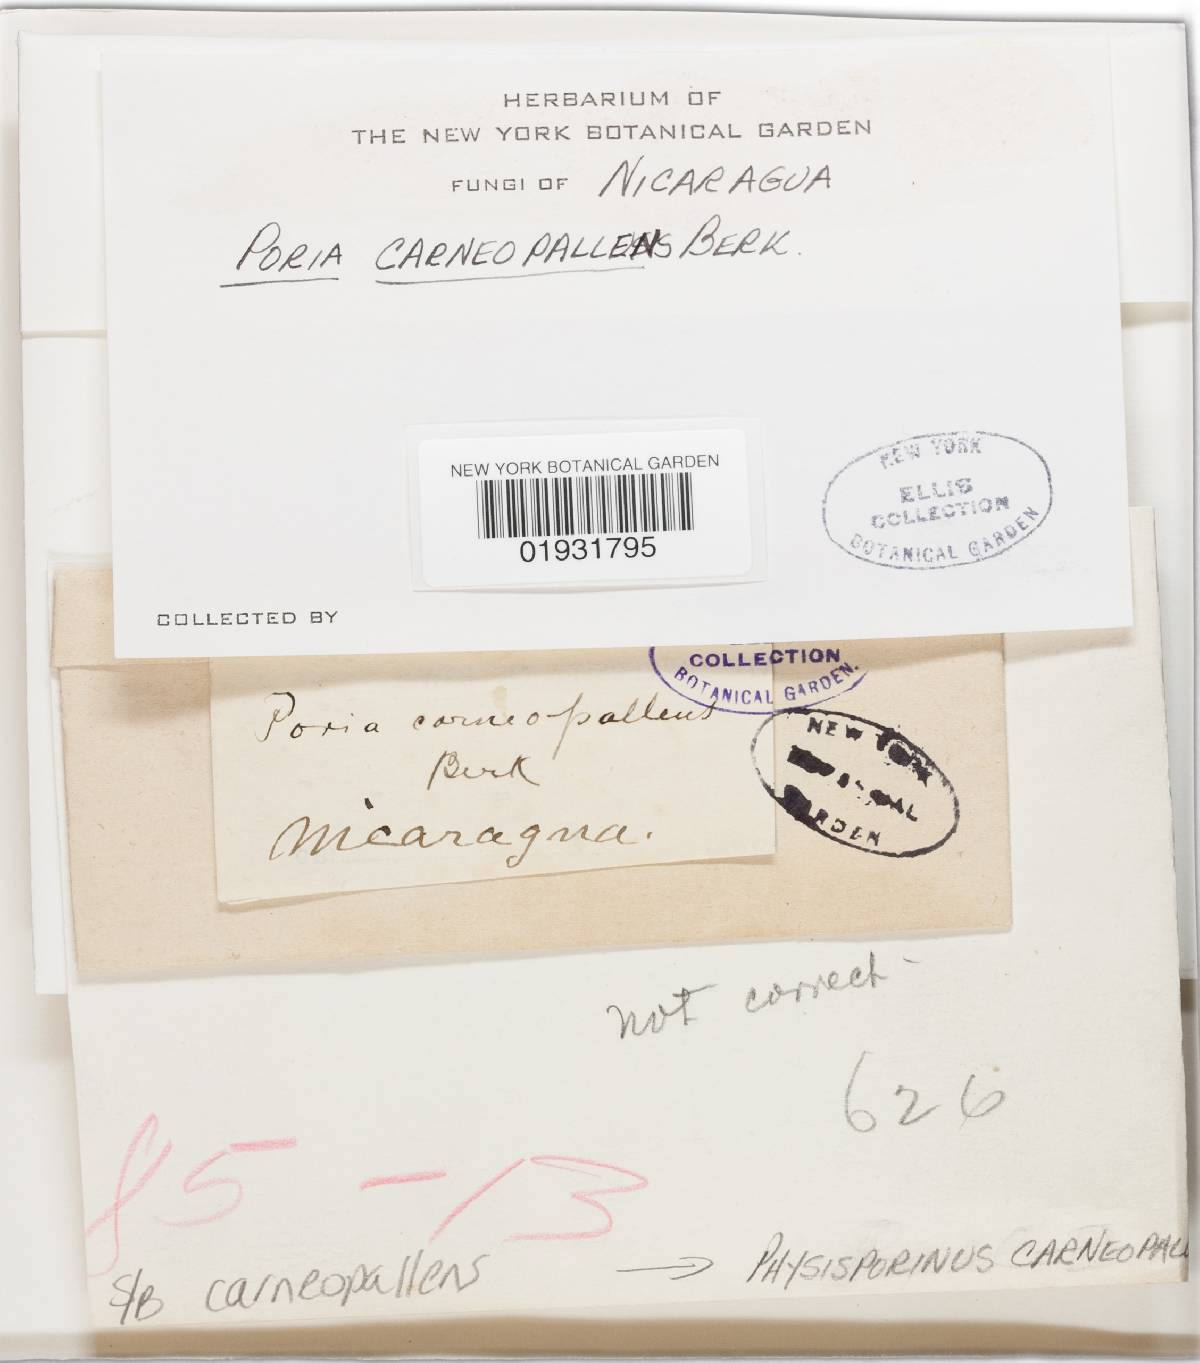 HERBARIUM OF
THE NEW YORK BOTANICAL GARDEN
FUNGI OF NICARAGUA
PORIA CARNEOPALLENS BERK.
NEW YORK BOTANICAL GARDEN
01931795
NEW YORK
ELLIS
COLLECTION
BOTANICAL GARDEN
COLLECTED BY
COLLECTION
BOTANICAL GARDEN.
Poria carneopallens
Berk
Nicaragua.
NEW YORK
GARDEN
not correct -
626
85 - 13
S/B carneopallens → PHYSISPORINUS CARNEOPALL